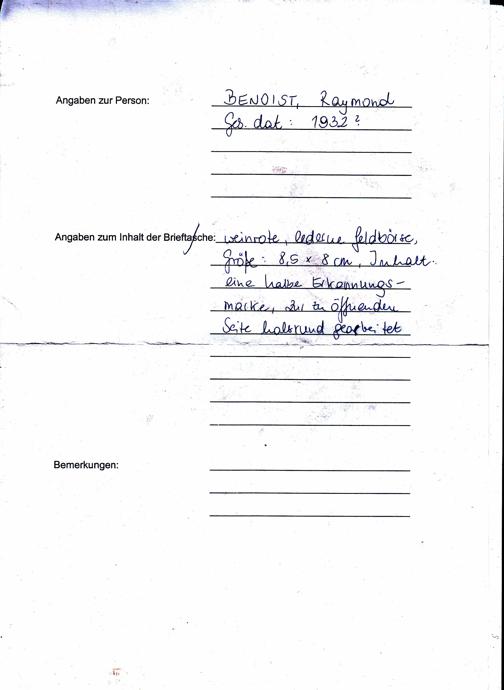 Angaben zur Person: BENOIST, Raymond
Geb. dat: 1932?
Angaben zum Inhalt der Brieftasche: weinrote, lederne Geldbörse,
Größe: 8,5 x 8 cm, Inhalt:
eine halbe Erkennungs-
marke, zur zu öffnenden
Seite halbrund gearbeitet
Bemerkungen: